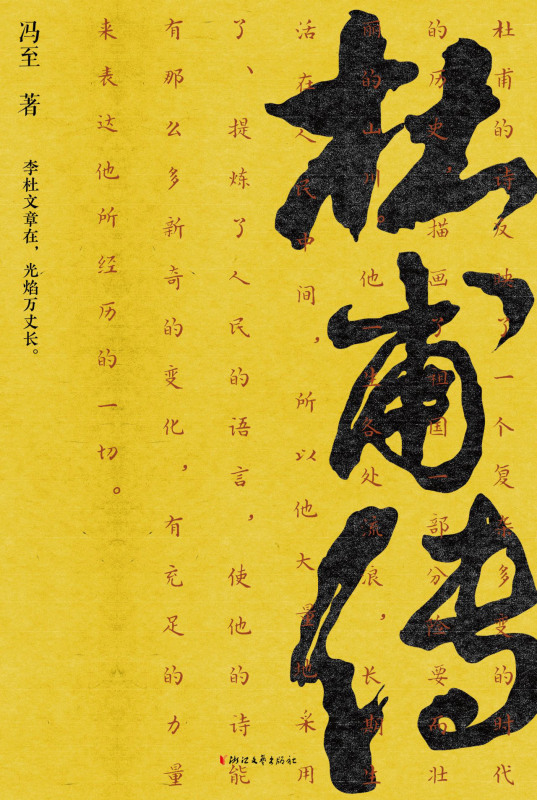 杜甫传
杜甫的诗反映了一个复杂多变的时代
的历史，描画了祖国一部分险要而壮
丽的山川。他一生各处流浪，长期生
活在人民中间，所以他大量地采用
了、提炼了人民的语言，使他的诗能
有那么多新奇的变化，有充足的力量
来表达他所经历的一切。
冯至 著
李杜文章在，光焰万丈长。
浙江文艺出版社